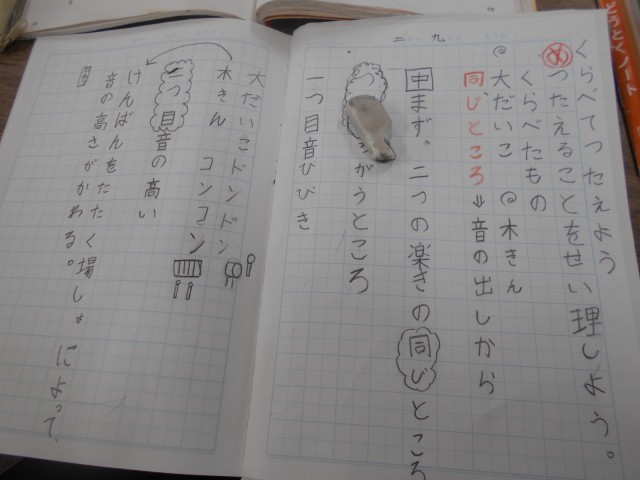 どうとくノート
二 九
くらべてつたえよう
め つたえることをせい理しよう。
くらべたもの
@大だいこ @木きん
同じところ⇓音の出しから
中 まず、二つの楽きの同じところ
がうところ
一つ目音ひびき
大だいこドンドン
木きん コンコン
二つ目音の高い
けんばんをたたく場しょによって、
音の高さがかわる。